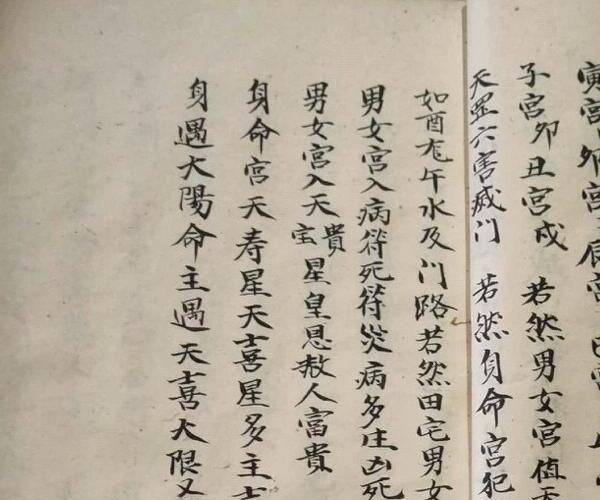 寅宫卯宫
子宫卯丑宫戍 若然男女宫值
天罡六害滅门 若然身命宫犯
如酉尨午水及门路若然田宅男女
男女宫入病符死符災病多生凶死
男女宫入天貴宝星皇恩赦人富貴
身命宫天寿星天喜星多主
身遇大陽命主遇天喜大限又